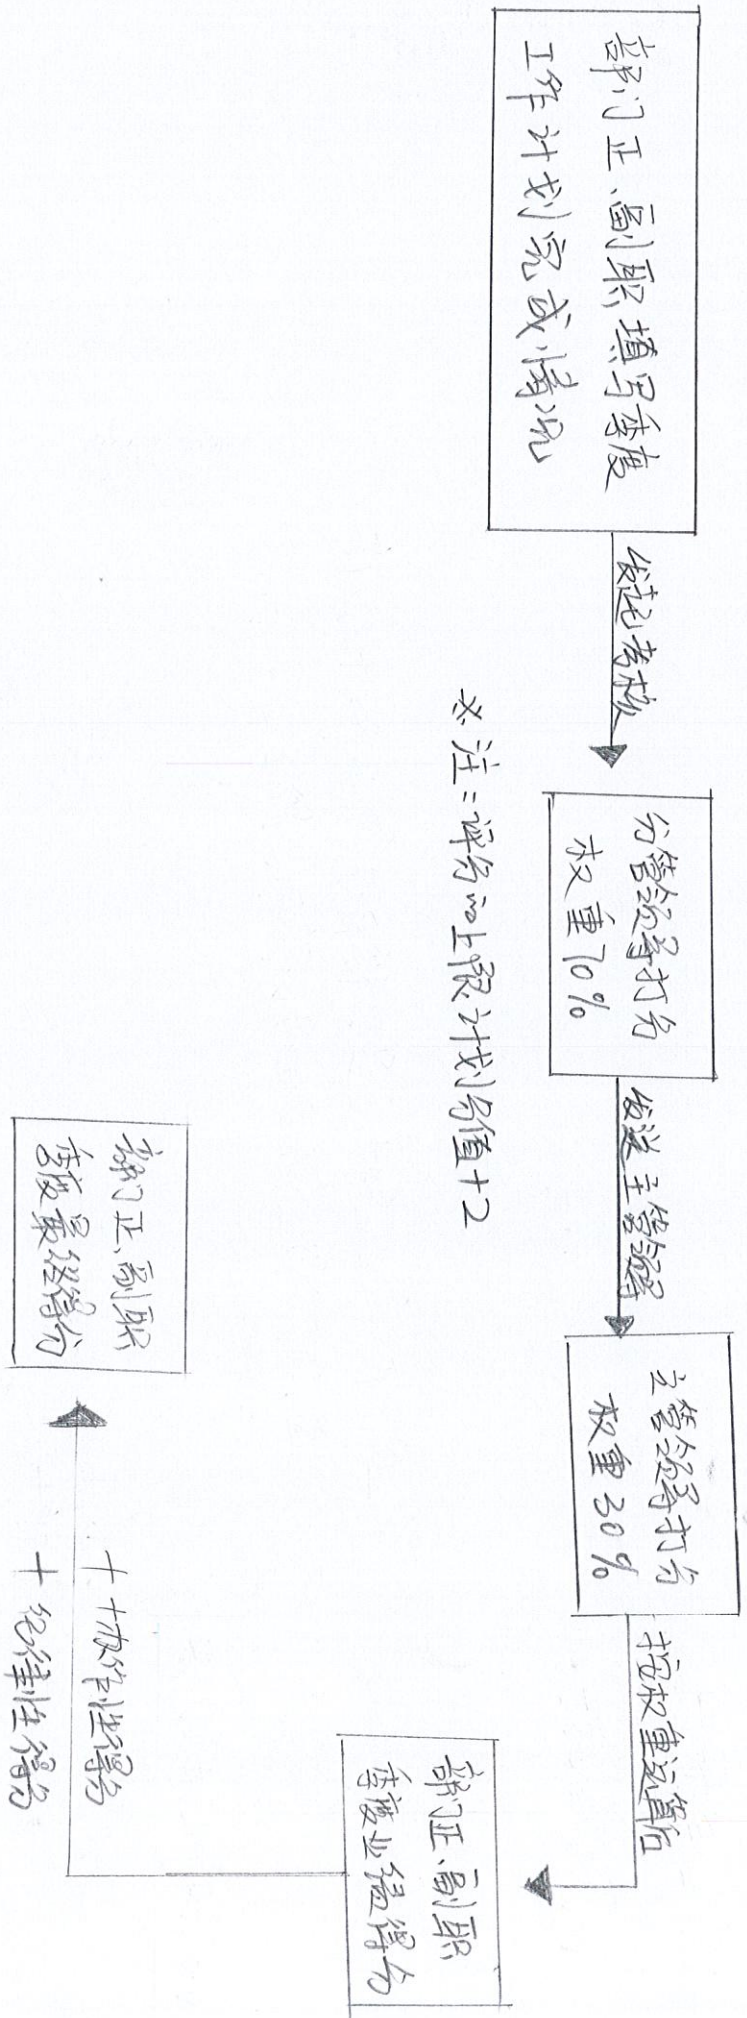 部门正、副职填写季度
工作计划完成情况
发起考核
分管领导打分
权重70%
发送主管领导
主管领导打分
权重30%
按权重运算后
部门正、副职
季度业绩得分
+ 协作性得分
+ 纪律性得分
部门正、副职
季度最终得分
※注：评分的上限，计划分值+2